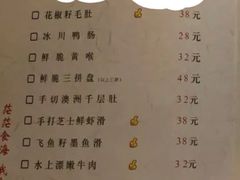 □ 花椒籽毛肚 38元
□ 冰川鸭肠 28元
□ 鲜脆黄喉 32元
□ 鲜脆三拼盘(以上三样) 48元
□ 手切澳洲千层肚 32元
□ 手打芝士鲜虾滑 38元
□ 飞鱼籽墨鱼滑 38元
□ 水上漂嫩牛肉 32元
茫茫食海